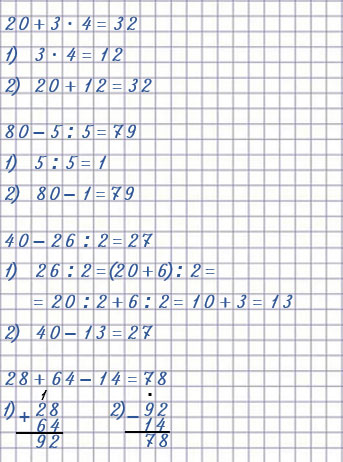 20 + 3 · 4 = 32
1) 3 · 4 = 12
2) 20 + 12 = 32
80 – 5 : 5 = 79
1) 5 : 5 = 1
2) 80 – 1 = 79
40 – 26 : 2 = 27
1) 26 : 2 = (20 + 6) : 2 =
= 20 : 2 + 6 : 2 = 10 + 3 = 13
2) 40 – 13 = 27
28 + 64 – 14 = 78
1
1) 28 2) 92
+ 64 – 14
92 78